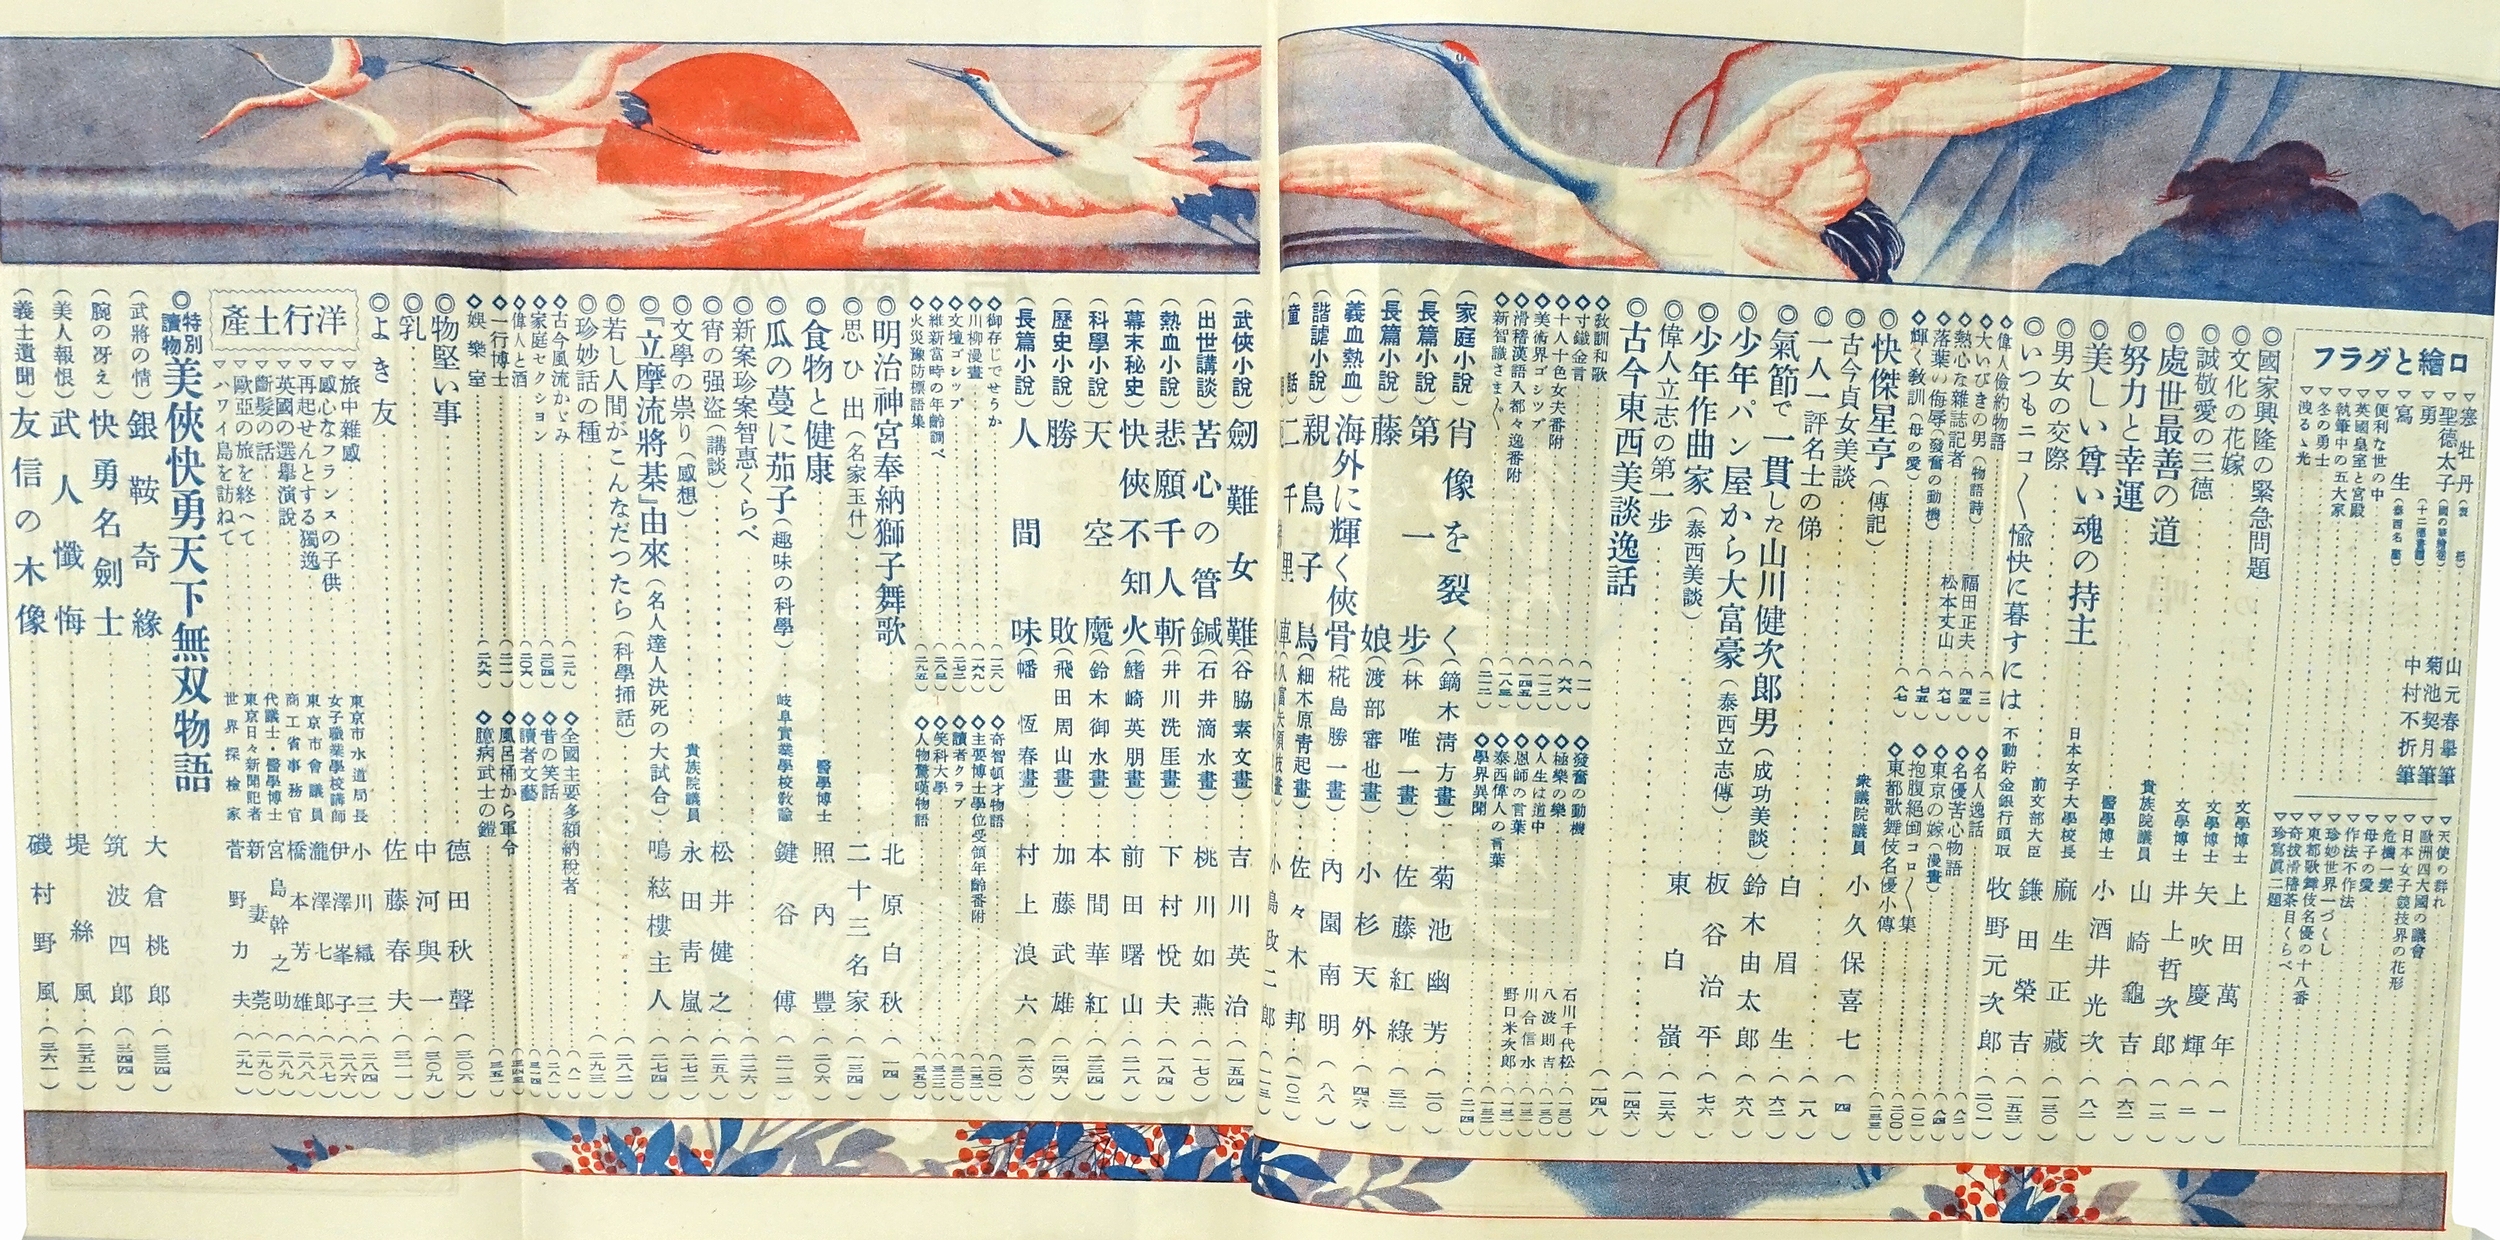 口繪とグラフ
▽寒牡丹(表紙)…山元春擧筆
▽聖德太子(國の華繪卷)…菊池契月筆
▽勇…中村不折筆
▽寫生(泰西名畫)
▽便利な世の中
▽英國皇室と宮殿
▽執筆中の五大家
▽冬の勇士
▽洩るゝ光
▽天使の群れ
▽歐洲四大國の議會
▽日本女子競技界の花形
▽危機一髪
▽母子の愛
▽作法不作法
▽珍妙世界一づくし
▽東都歌舞伎名優の十八番
▽奇拔滑稽茶目くらべ
▽珍寫眞二題
◎國家興隆の緊急問題…文學博士 上田萬年(一)
◎文化の花嫁…文學博士 矢吹慶輝(二)
◎誠敬愛の三德…文學博士 井上哲次郎(一二)
◎處世最善の道…貴族院議員 山崎龜吉(六二)
◎努力と幸運…醫學博士 小酒井光次(八二)
◎美しい尊い魂の持主…日本女子大學校長 麻生正藏(一三〇)
◎男女の交際…前文部大臣 鎌田榮吉(一五三)
◎いつもニコ〱愉快に暮すには…不動貯金銀行頭取 牧野元次郎(二〇一)
◆偉人儉約物語…(一三)
◆大いびきの男(物語詩)…福田正夫(四五)
◆熱心な雜誌記者…松本丈山(六七)
◆落葉の侮辱(發奮の動機)…(七五)
◆輝く敎訓(母の愛)…(八七)
◆名人逸話…(八二)
◆名優苦心物語…(八四)
◆東京の嫁(漫畫)…(一〇一)
◆抱腹絕倒コロ〱集…(二〇〇)
◆東都歌舞伎名優小傳…(二三三)
◎快傑星亨(傳記)…衆議院議員 小久保喜七(四)
◎古今貞女美談…(一八)
◎一人一評名士の俤
◎氣節で一貫した山川健次郎男(成功美談)…白眉生(六二)
◎少年パン屋から大富豪(泰西立志傳)…鈴木由太郎(六八)
◎少年作曲家(泰西美談)…板谷治平(七六)
◎偉人立志の第一步…東白嶺(一三六)
◎古今東西美談逸話…(一四六)
◆敎訓和歌…(一一)
◆寸鐵金言…(六六)
◆十人十色女夫番附…(一一三)
◆美術界ゴシップ…(一四五)
◆滑稽漢語入都々逸番附…(一八三)
◆新智識さま〲…(二一二)
◆發奮の動機…石川千代松(一三〇)
◆極樂の樂…八波則吉(一三〇)
◆人生は道中…川合信水(一三一)
◆恩師の言葉…野口米次郎(一三一)
◆泰西偉人の言葉…(一三二)
◆學界異聞…(二一四)
(家庭小說)肖像を裂く(鏑木淸方畫)…菊池幽芳(二〇)
(長篇小說)第一步(林唯一畫)…佐藤紅綠(三二)
(長篇小說)藤娘(渡部審也畫)…小杉天外(四六)
(義血熱血)海外に輝く俠骨(椛島勝一畫)…內園南明(八八)
(諧謔小說)親鳥子鳥(細木原靑起畫)…佐々木邦(一〇二)
(武俠小說)劒難女難(谷脇素文畫)…吉川英治(一五四)
(出世講談)苦心の管鍼(石井滴水畫)…桃川如燕(一七〇)
(熱血小說)悲願千人斬(井川洗厓畫)…下村悅夫(一八四)
(幕末秘史)快俠不知火(鰭崎英朋畫)…前田曙山(二一八)
(科學小說)天空魔(鈴木御水畫)…本間華紅(二三四)
(歷史小說)勝敗(飛田周山畫)…加藤武雄(二四六)
(長篇小說)人間味(幡恆春畫)…村上浪六(二六〇)
◆御存じでせうか…(一二八)
◆川柳漫畫…(一六九)
◆文壇ゴシップ…(二七一)
◆維新當時の年齡調べ…(二八三)
◆火災豫防標語集…(二九五)
◆奇智頓才物語…(二〇一)
◆主要博士學位受領年齡番附…(二三三)
◆讀者クラブ…(三二〇)
◆笑科大學…(三二二)
◆人物驚嘆物語…(三五〇)
◎明治神宮奉納獅子舞歌…北原白秋(一四)
◎思ひ出(名家玉什)…二十三名家(一三四)
◎食物と健康…醫學博士 照內豐(二〇六)
◎瓜の蔓に茄子(趣味の科學)…岐阜實業學校敎諭 鍵谷傅(二一二)
◎新案珍案智惠くらべ…(二二六)
◎宵の强盜(講談)…松井健之(二五八)
◎文學の祟り(感想)…貴族院議員 永田靑嵐(二七二)
◎『立摩流將棊』由來(名人達人決死の大試合)…鳴絃樓主人(二七四)
◎若し人間がこんなだつたら(科學揷話)…(二八二)
◎珍妙話の種…(二九三)
◆古今風流かゞみ…(一二九)
◆家庭セクション…(二〇四)
◆偉人と酒…(二〇六)
◆一行博士…(二一一)
◆娛樂室…(二九六)
◆全國主要多額納稅者…(八一)
◆昔の笑話…(二八一)
◆讀者文藝…(三一四)
◆風呂桶から軍令…(三四五)
◆臆病武士の鎧…(三五一)
◎物堅い事…德田秋聲(三〇六)
◎乳…中河與一(三〇九)
◎よき友…佐藤春夫(三一一)
洋行土產
▽旅中雜感…東京市水道局長 小川織三(二八四)
▽感心なフランスの子供…女子職業學校講師 伊澤峯子(二八六)
▽再起せんとする獨逸…東京市會議員 瀧澤七郎(二八七)
▽英國の選擧演說…商工省事務官 橋本芳雄(二八八)
▽斷髮の話…代議士・醫學博士 宮島幹之助(二八九)
▽歐亞の旅を終へて…東京日々新聞記者 新妻莞(二九〇)
▽ハワイ島を訪ねて…世界探檢家 菅野力夫(二九一)
◎特別讀物 美俠快勇天下無双物語
(武將の情)銀鞍奇緣…大倉桃郎(三三四)
(腕の冴え)快勇名劍士…筑波四郎(三四四)
(美人報恨)武人懺悔…堤絲風(三五二)
(義士遺聞)友信の木像…磯村野風(三六一)